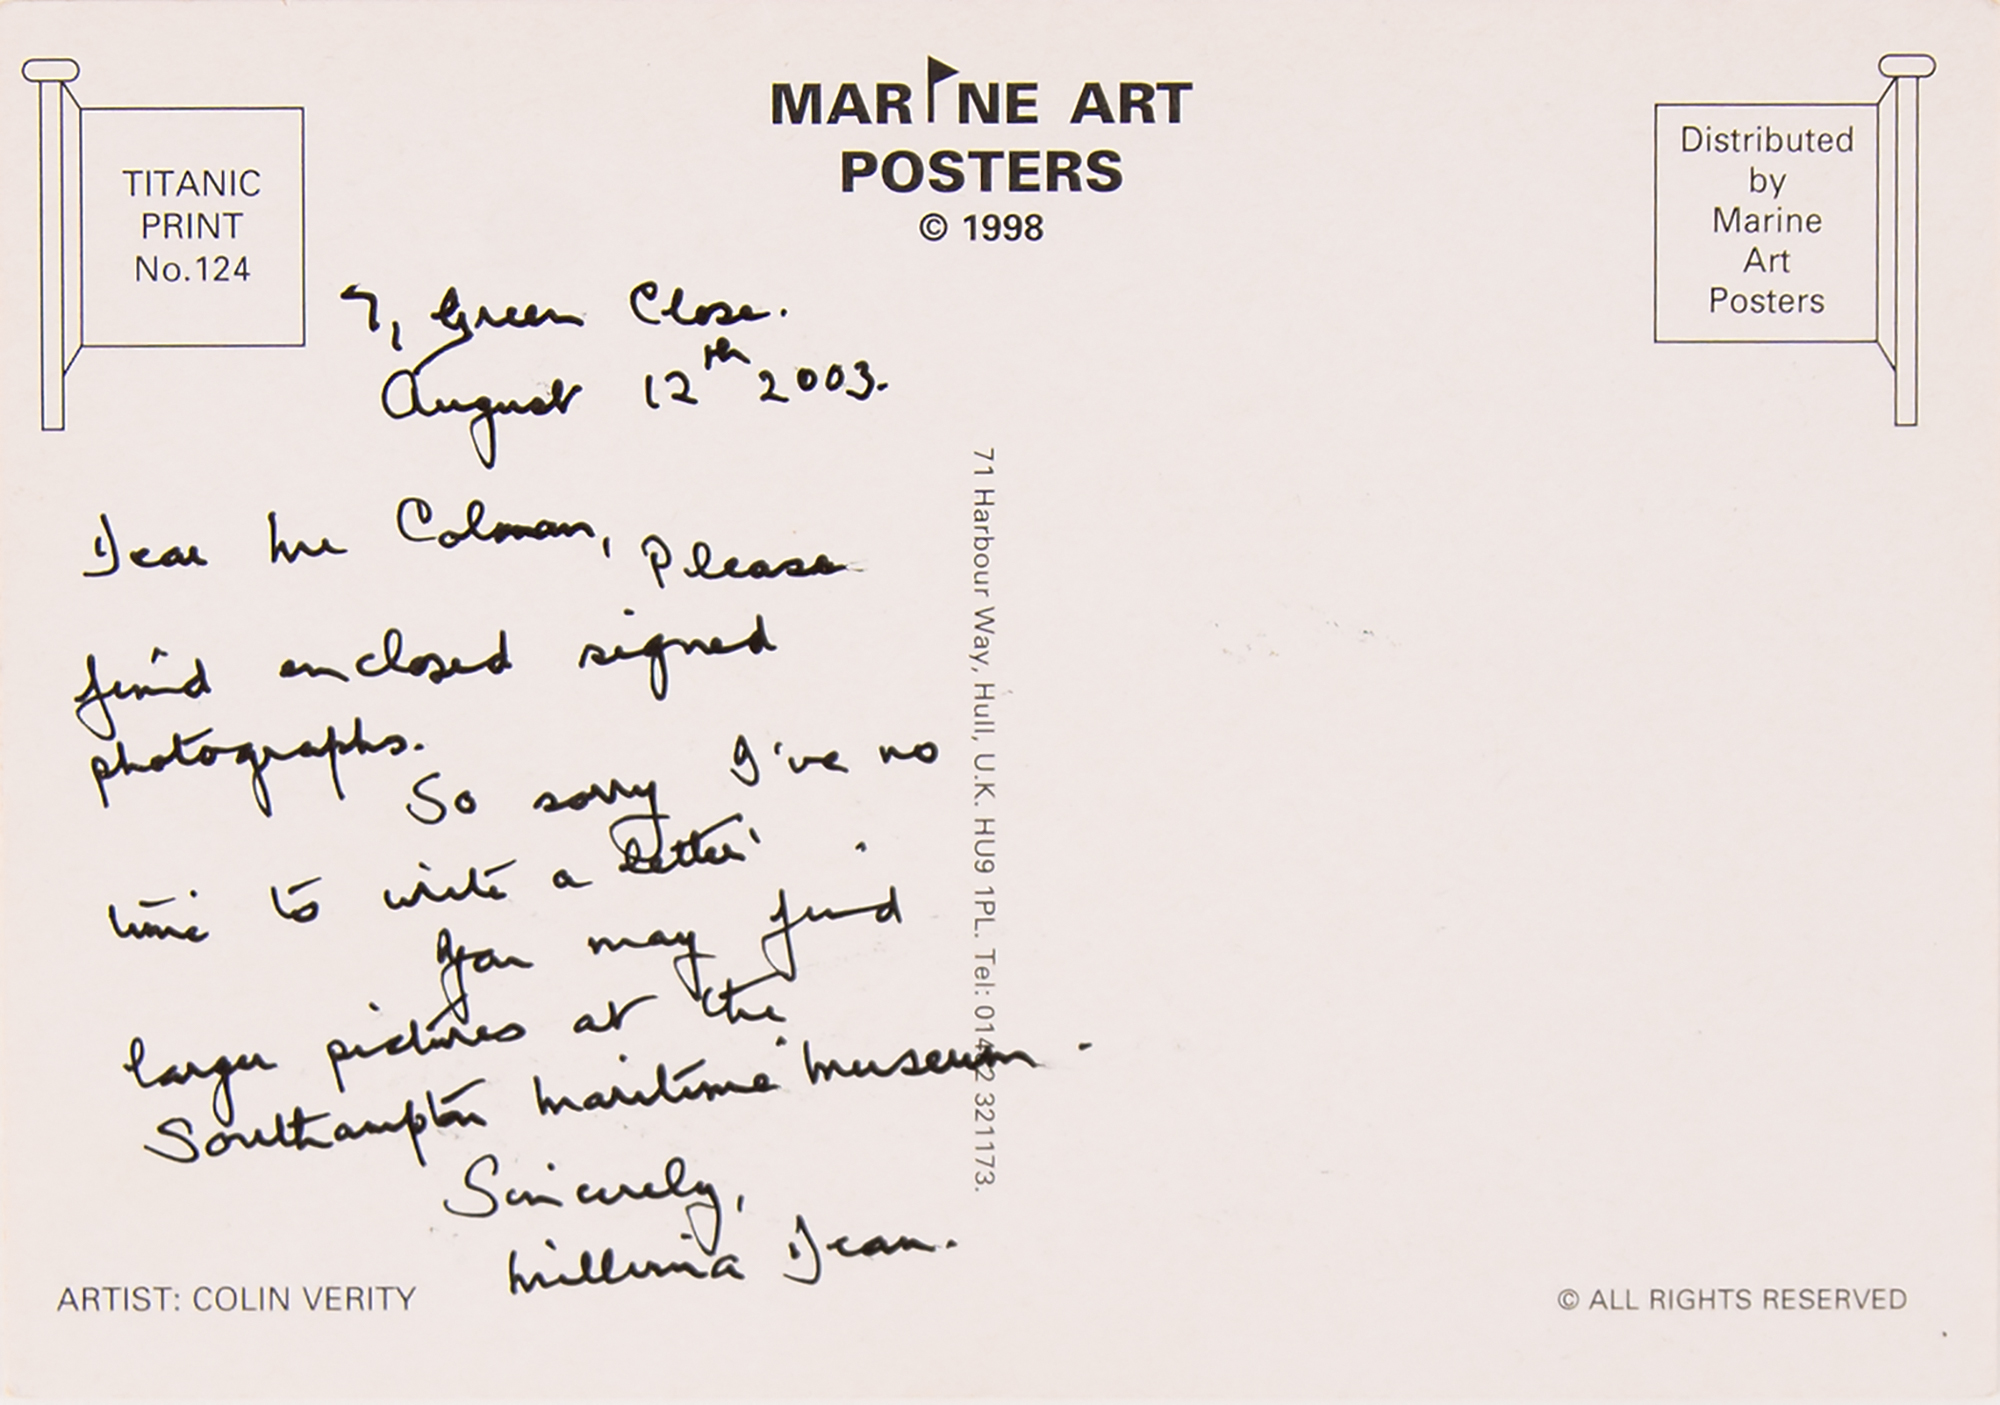 MARINE ART
POSTERS
© 1998
TITANIC
PRINT
No.124
Distributed
by
Marine
Art
Posters
7, Green Close.
August 12th 2003.
Dear Mr Colman, Please
find enclosed signed
photographs.
So sorry I've no
time to write a letter.
You may find
larger pictures at the
Southampton Maritime Museum.
Sincerely,
Millvina Dean.
71 Harbour Way, Hull, U.K. HU9 1PL. Tel: 01482 321173.
ARTIST: COLIN VERITY
© ALL RIGHTS RESERVED